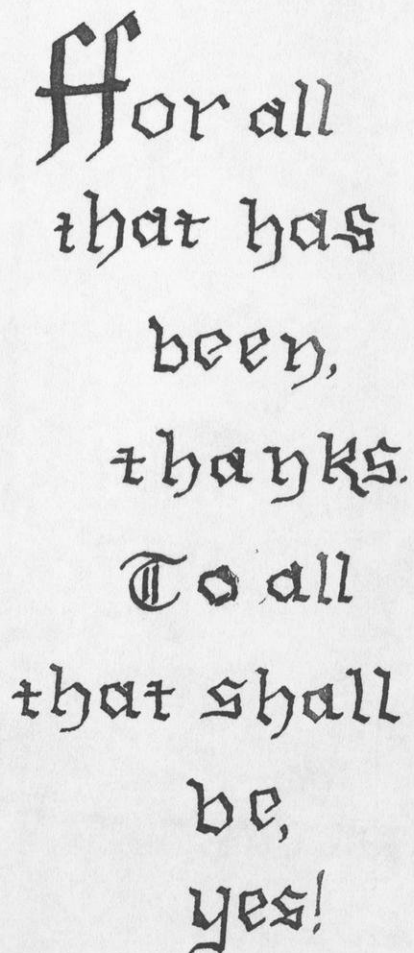 For all
that has
been,
thanks.
To all
that shall
be,
yes!